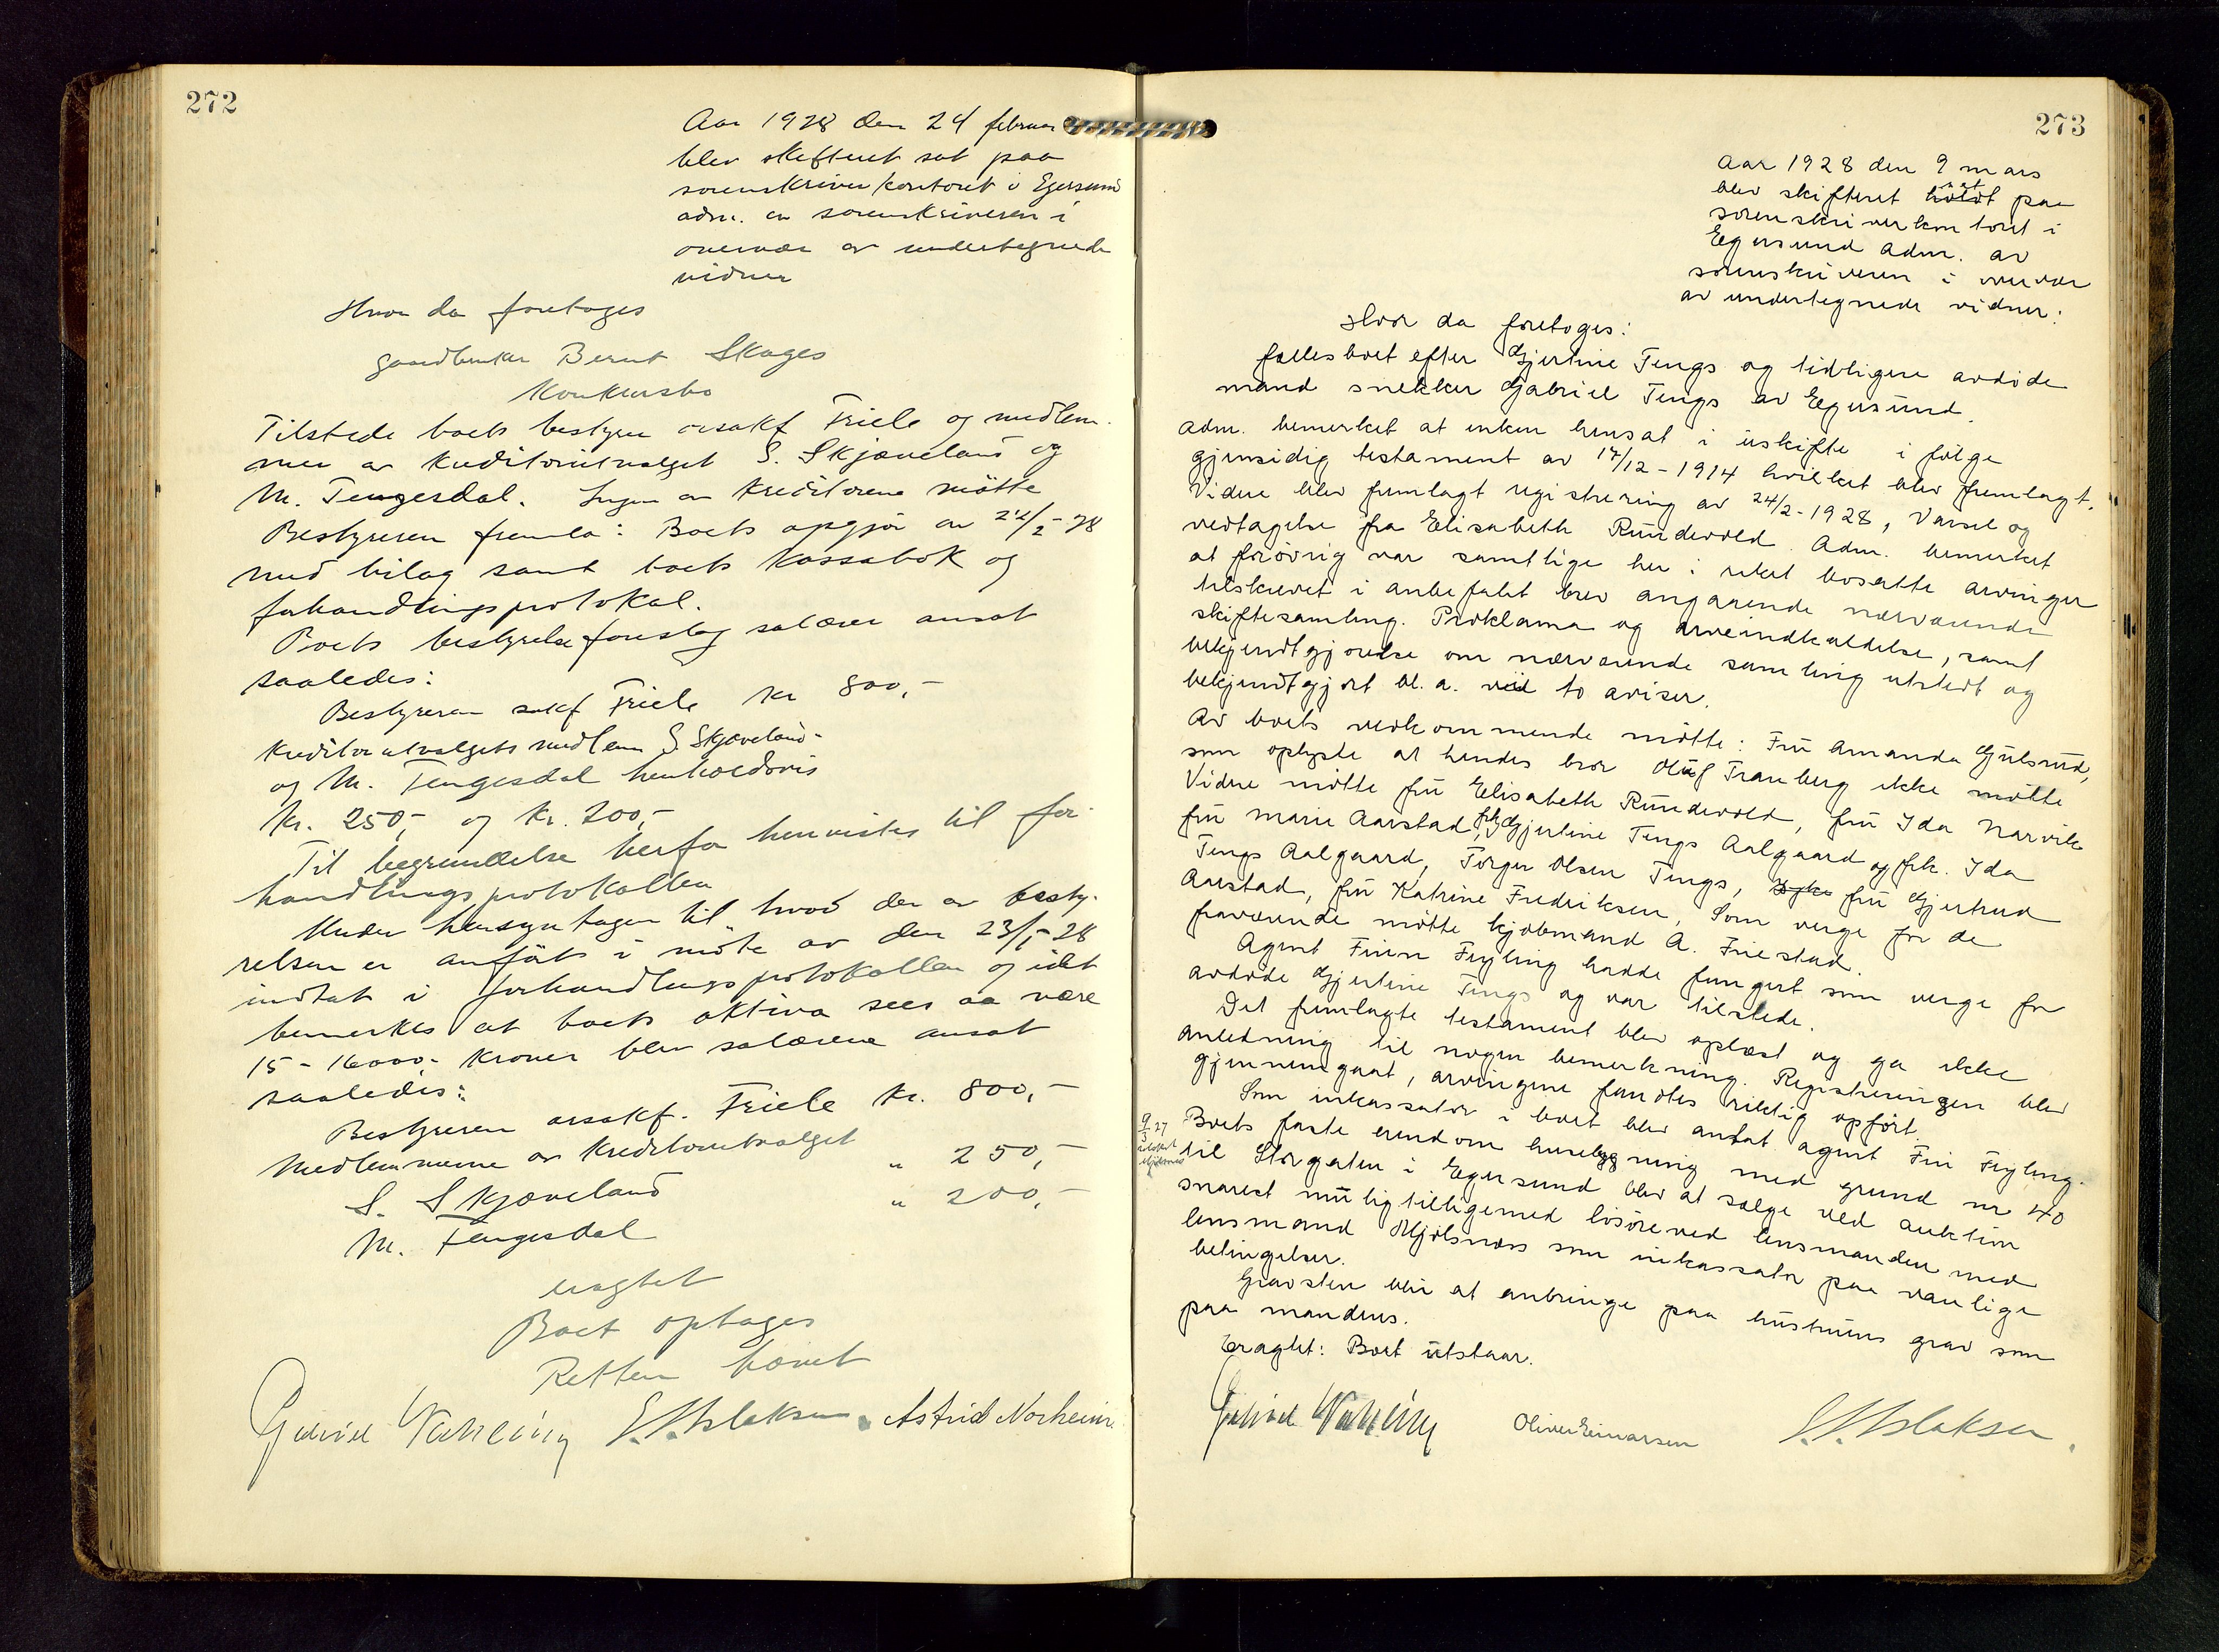 272
Aar 1928 den 24 februar
blev skifteret sat paa
sorenskriverkontoret i Egersund
adm. av sorenskriveren i
overvær av undertegnede
vidner
Hvor da foretoges
gaardbruker Bernt Skages
Konkursbo
Tilstede boets bestyrer orsakf Friele og medlem-
mer av kreditorutvalget S. Skjæveland og
M. Tengesdal. Ingen av kreditorene mötte
Bestyreren fremla: Boets opgjör av 22/2-28
med bilag samt boets kassabok og
forhandlingsprotokol.
Boets bestyrelse foreslog salærer ansat
saaledes:
Bestyreren sakf Friele kr 800,-
Kreditorutvalgets medlem S. Skjæveland-
og M. Tengesdal henholdsvis
kr. 250,- og kr. 200,-
Til begrundelse herfor henvistes til for-
handlingsprotokollen
Under hensyntagen til hvad der av besty-
relsen er anfört i möte av den 23/1-28
indtat i forhandlingsprotokollen og idet
bemerkes at boets aktiva sees aa være
15-16000- kroner blev salærene ansat
saaledes:
Bestyreren orsakf. Friele kr. 800,-
Medlemmene av kreditorutvalget
S. Skjæveland " 250,-
M. Tengesdal " 200,-
eragtet
Boet optages
Retten hævet
Gabriel Vahling E. S. Islaksen. Astrid Norheim.
273
Aar 1928 den 9 mars
blev skifteret holdt sat paa
sorenskriverkontoret i
Egersund adm. av
sorenskriveren i overvær
av undertegnede vidner:
Hvor da foretoges:
fællesboet efter Gjertine Tengs og tidligere avdöde
mand snekker Gabriel Tengs av Egersund
Adm. bemerket at enken hensat i uskifte i fölge
gjensidig testament av 17/12-1914 hvilket blev fremlagt.
Videre blev fremlagt registrering av 24/2-1928, Varsel og
vedtagelse fra Elisabeth Rundevold. Adm. bemerket
at forövrig var samtlige her i riket bosatte arvinger
tilskrevet i anbefalet brev angaaende nærværende
skiftesamling. Proklama og arveindkaldelse, samt
bekjendtgjörelse om nærværende samling utstedt og
bekjendtgjort bl. a. ved to aviser.
Av boets vedkommende mötte: Fru Amanda Gjulsrud,
som oplyste at hendes bror Oluf Tranberg ikke mötte
Videre mötte fru Elisabeth Rundevold, fru Ida Narvik
fru Marie Aarstad, frk Gjertine Tengs Aalgaard og frk. Ida
Tengs Aalgaard, Torger Olsen Tengs, fru Gjertrud
Aarstad, fru Katrine Fredriksen, Som verge for de
fraværende mötte kjöbmand A. Friestad.
Agent Finn Feyling hadde fungert som verge for
avdöde Gjertine Tengs og var tilstede.
Det fremlagte testament blev oplæst og ga ikke
anledning til nogen bemerkning. Registreringen blev
gjennemgaat, arvingene fandtes riktig opfört.
Som inkassator i boet blev antat agent Fin Feyling.
Boets faste eiendom husebygning med grund nr 40
til Storgaten i Egersund blev at sælge ved auktion
snarest mulig tilligemed lösöre ved lensmanden med
lensmand Mjölsnæs som inkassator paa vanlige
betingelser.
Gravsten blir at anbringe paa hustruens grav som
paa mandens.
Eragtet: Boet utstaar.
Gabriel Vahling Oliver Einarsen E. S. Islaksen.